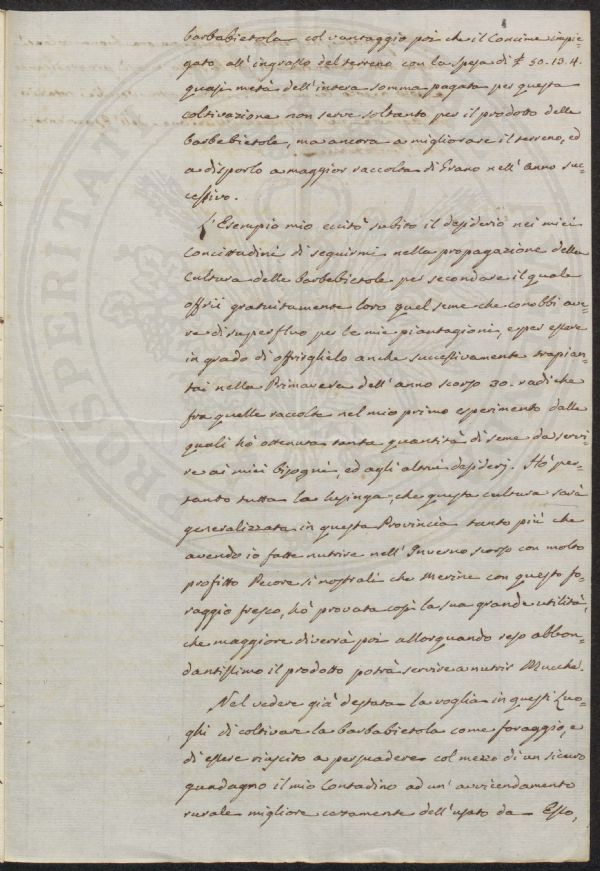 barbabietola col vantaggio poi che il Concime impie=
gato all'ingrasso del terreno con la spesa di £ 50.13.4.
quasi metà dell'intera somma pagata per questa
coltivazione non serve soltanto per il prodotto delle
barbabietole, ma ancora a migliorare il terreno, ed
a disporlo a maggior raccolta di Grano nell'anno suc=
cessivo.
L'Esempio mio eccitò subito il desiderio nei miei
Concittadini di seguirmi nella propagazione della
Cultura delle barbabietole per secondare il quale
offrii gratuitamente loro quel seme che conobbi ave=
re di superfluo per le mie piantagioni, e per essere
in grado di offrirglielo anche successivamente trapian=
tai nella Primavera dell'anno scorso 30. radiche
fra quelle raccolte nel mio primo esperimento dalle
quali hò ottenuta tanta quantità di seme da servi=
re ai miei bisogni, ed agli altrui desiderj. Hò per=
tanto tutta la lusinga, che questa cultura sarà
generalizzata in questa Provincia tanto più che
avendo io fatte nutrire nell'Inverno scorso con molto
profitto Pecore sì nostrali che Merine con questo fo=
raggio fresco, hò provata così la sua grande utilità,
che maggiore diverrà poi allorquando reso abbon=
dantissimo il prodotto potrà servire a nutrir Mucche.
Nel vedere già destata la voglia in questi Luo=
ghi di coltivare la barbabietola come foraggio, e
di essere riuscito a persuadere col mezzo di un sicuro
guadagno il mio Contadino ad un'avvicendamento
rurale migliore certamente dell'usato da Esso,
PROSPERITATI